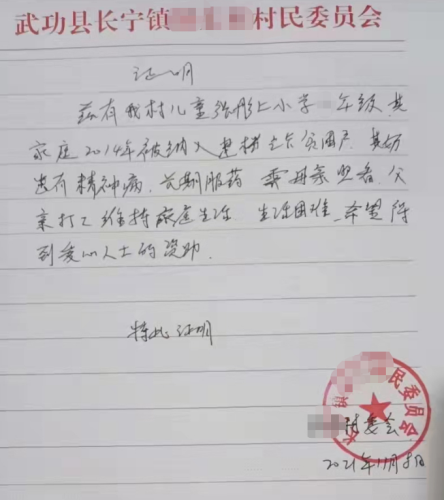 武功县长宁镇 村民委员会
证明
兹有我村儿童张 上小学 年级,其
家庭2014年被纳入建档立卡贫困户,其奶
患有精神病,长期服药 需母亲照看,父
亲打工维持家庭生活 生活困难,希望得
到爱心人士的资助.
特此证明
村委会
2021年11月8日
民委员会